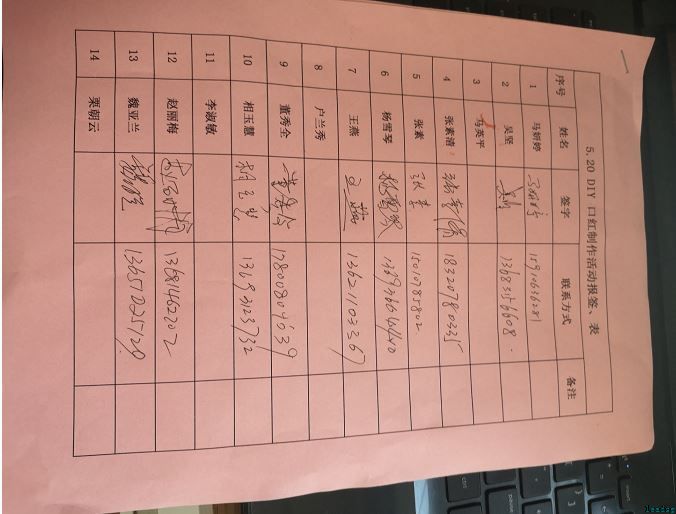 5.20 DIY 口红制作活动报签、表
序号 姓名 签字 联系方式 备注
1 马妍婷 15910636281
2 吴坚 吴坚 13683556608.
3 马英平
4 张素清 张素清 18320780335
5 张素 张素 15010785802.
6 杨雪琴 杨雪琴
7 王燕 王燕 13621103367
8 户兰秀
9 董秀全 董秀全 17800804639
10 相玉慧 相玉慧 13693123732
11 李淑敏
12 赵丽梅 赵丽梅 13681462202
13 魏亚兰 13651025129
14 栗朝云
ctrl